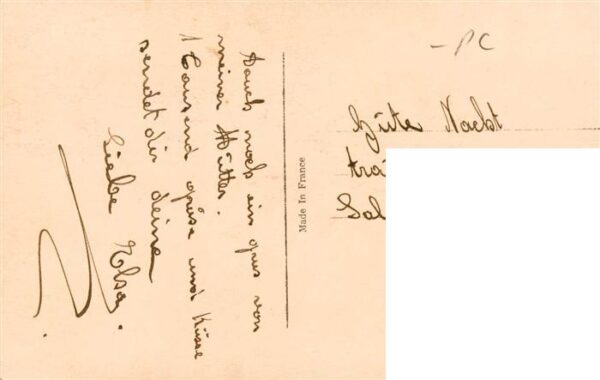 Auch noch ein grus von
meiner Mutter.
1 Tausend grüsse und Küsse
sendet dir deine
Liebe Elsa.
Made In France
- PC
Güte Nacht